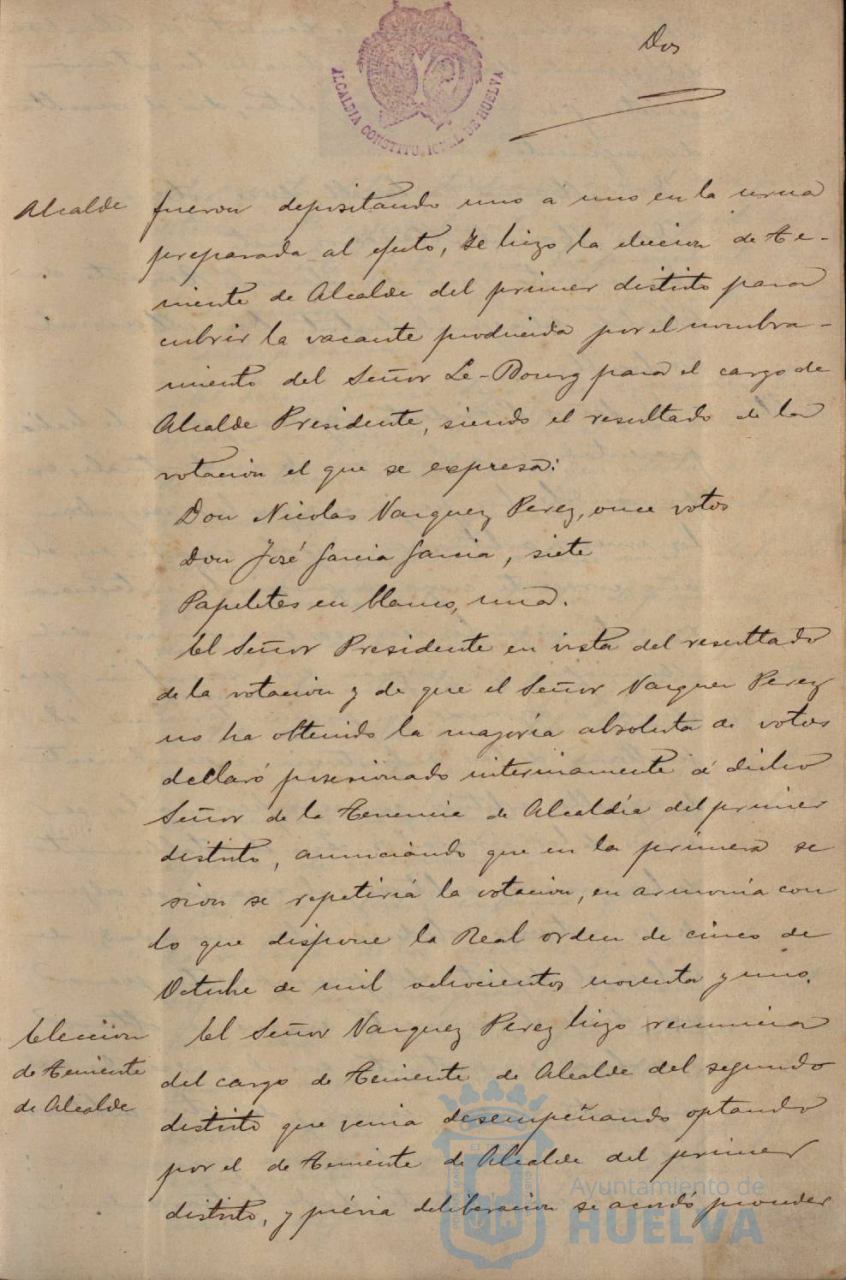 Dos
ALCALDIA CONSTITUCIONAL DE HUELVA
Alcalde
fueron depositando uno a uno en la urna
preparada al efecto, se hizo la eleccion de Te-
niente de Alcalde del primer distrito para
cubrir la vacante producida por el nombra-
miento del Señor Le-Bourg para el cargo de
Alcalde Presidente, siendo el resultado de la
votación el que se expresa:
Don Nicolas Vazquez Perez, once votos
Don José Garcia Garcia, siete
Papeletas en blanco, una.
El Señor Presidente en vista del resultado
de la votacion y de que el Señor Vazquez Perez
no ha obtenido la mayoría absoluta de votos
declaró posesionado interinamente á dicho
Señor de la Tenencia de Alcaldía del primer
distrito, anunciando que en la primera se
sion se repetiria la votacion, en armonía con
lo que dispone la Real orden de cinco de
Octubre de mil ochocientos noventa y uno.
Eleccion
de Teniente
de Alcalde
El Señor Vazquez Perez hizo renuncia
del cargo de Teniente de Alcalde del segundo
distrito que venia desempeñando optando
por el de Teniente de Alcalde del primer
distrito, y prévia deliberacion se acordó proceder
Ayuntamiento de
HUELVA